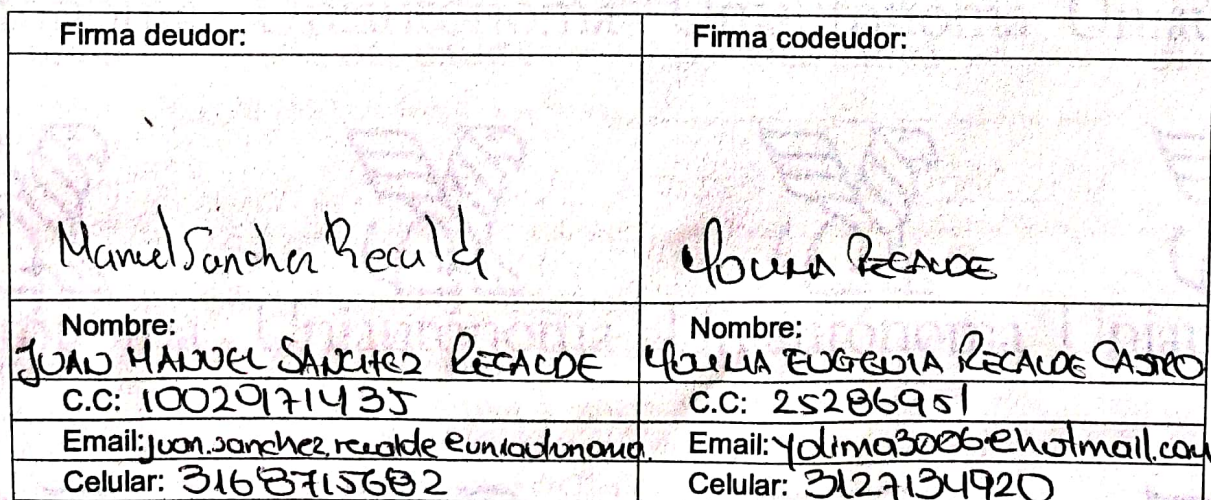 Firma deudor:
Firma codeudor:
Manuel Sanchez Recalde
Yolima RECALDE
Nombre:
JUAN MANUEL SANCHEZ RECALDE
Nombre:
YOLIMA EUGENIA RECALDE CASTRO
C.C: 10020171435
C.C: 25286951
Email: juan.sanchez.recalde@uniautonoma.
Email: yolima3006@hotmail.com
Celular: 3168715682
Celular: 3127134920